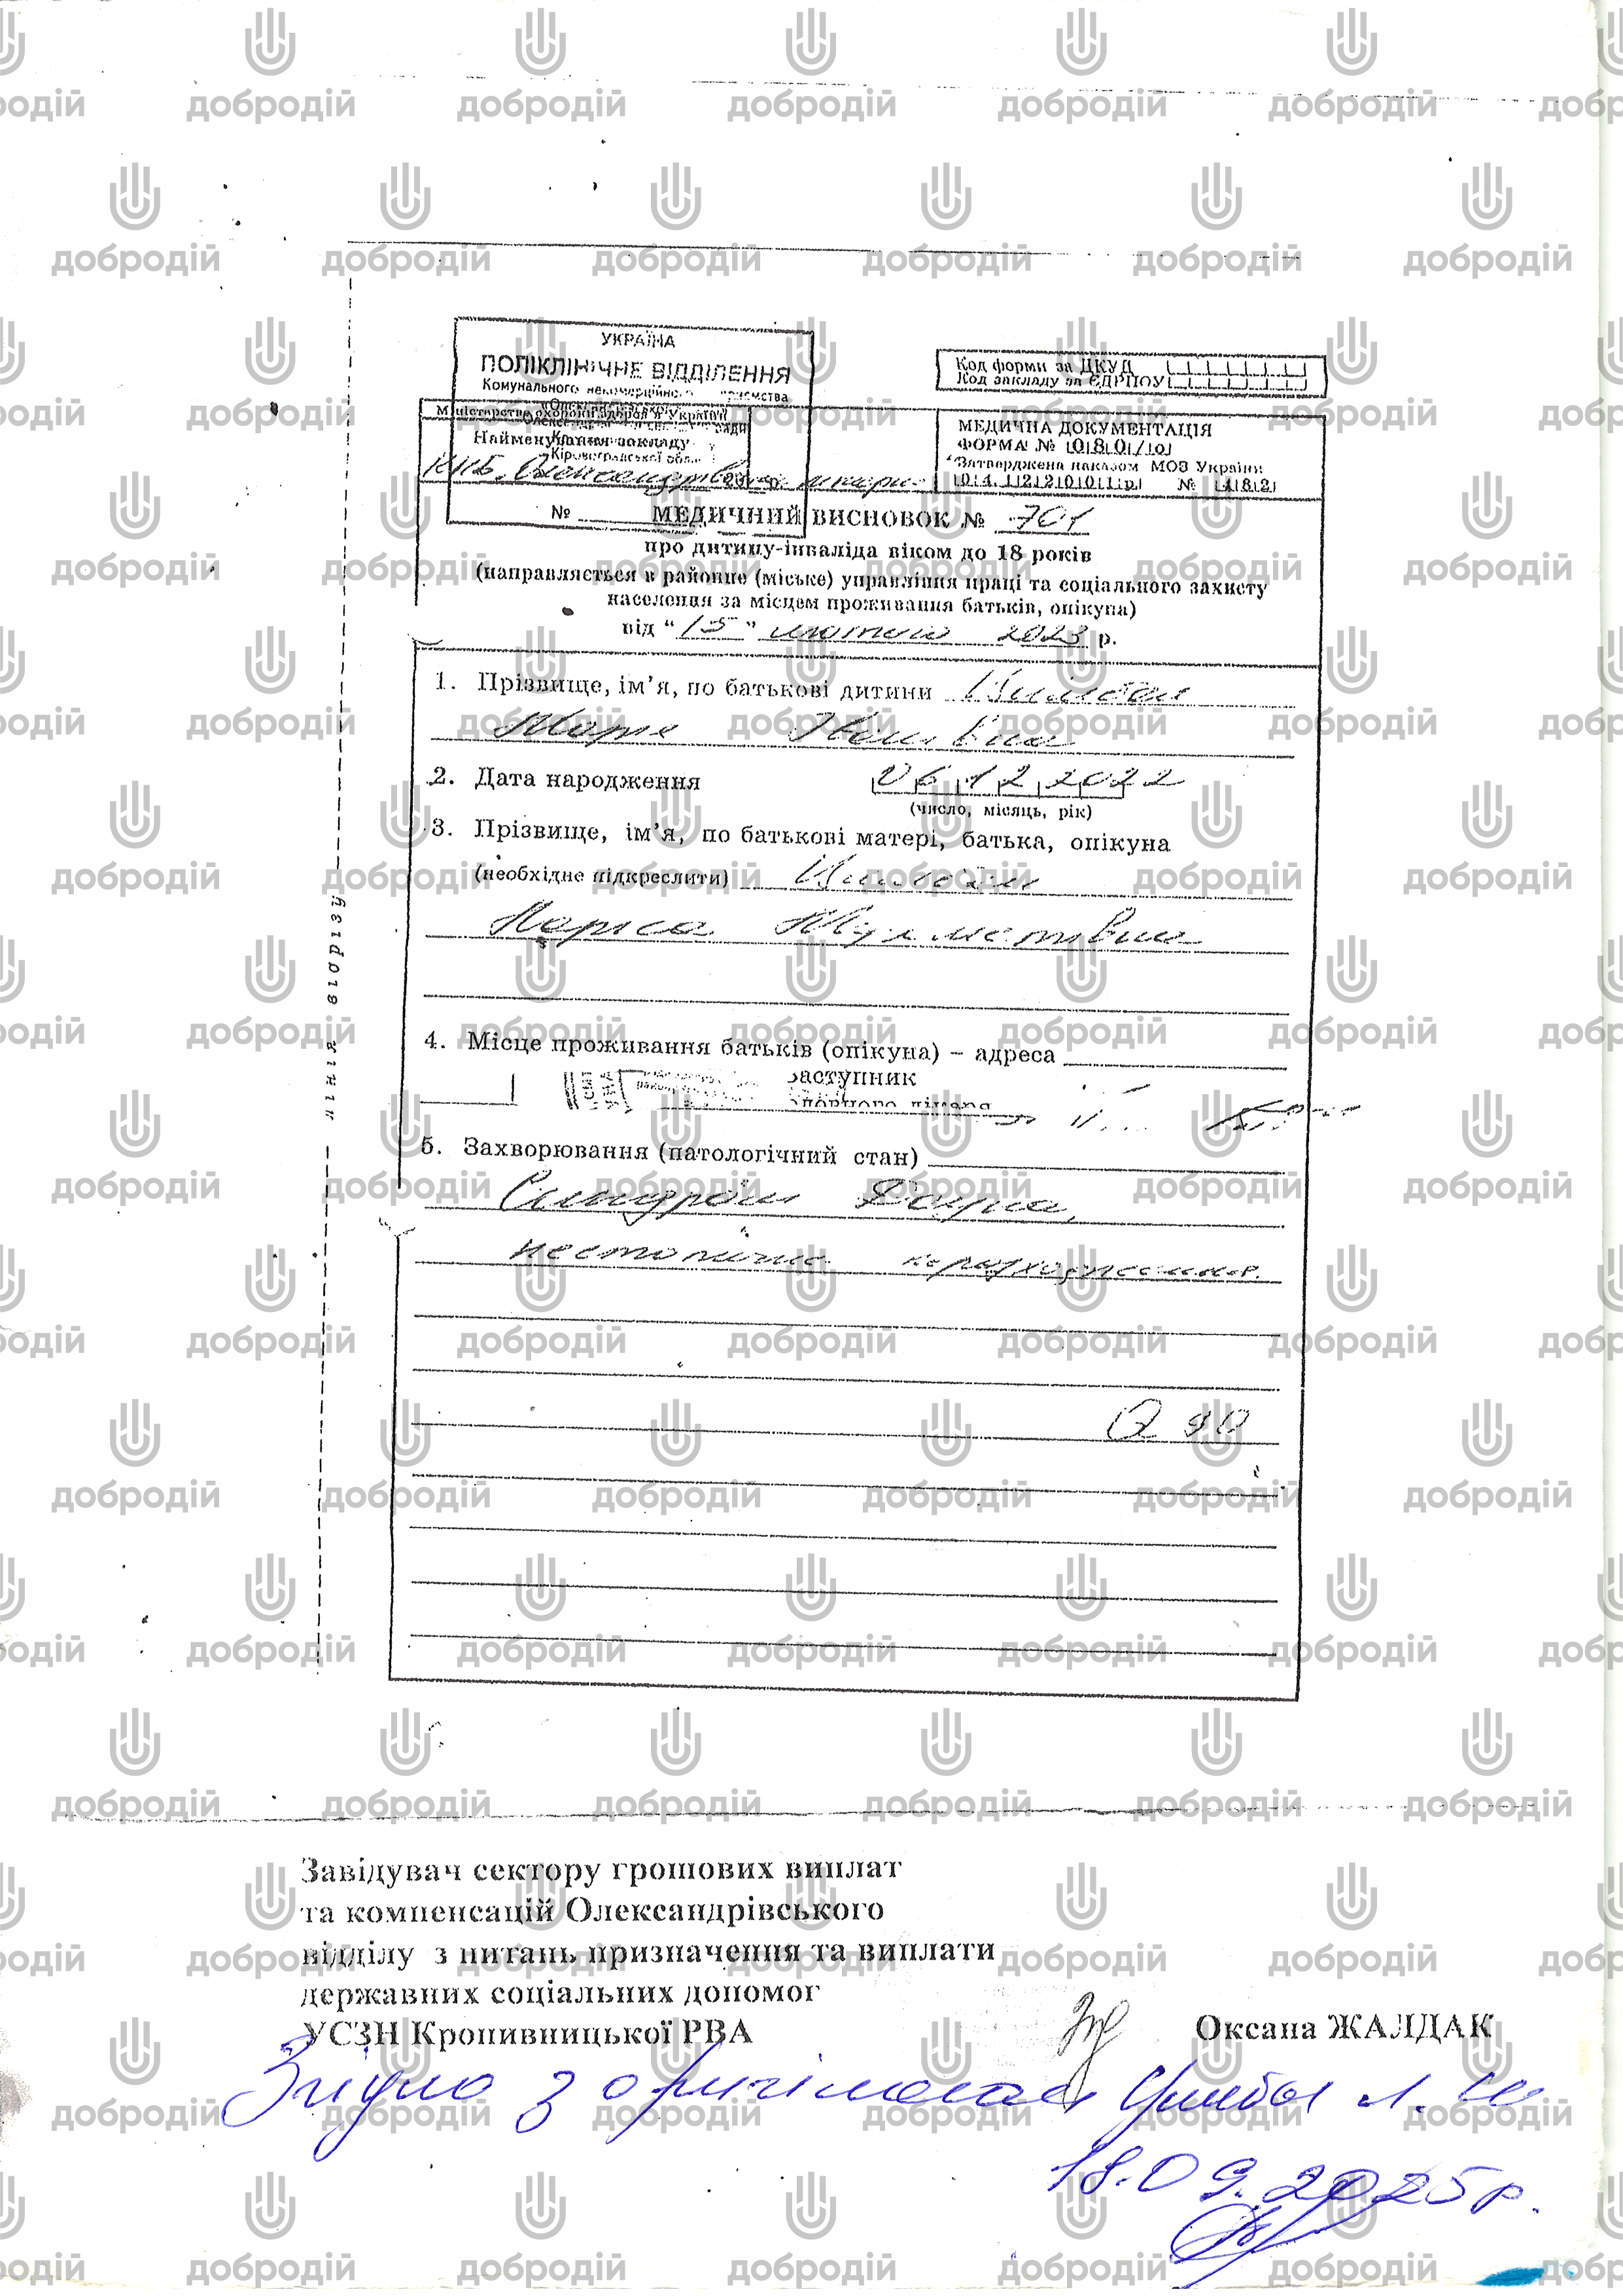 УКРАЇНА
ПОЛІКЛІНІЧНЕ ВІДДІЛЕННЯ
Комунального некомерційного
Міністерство охорони здоров'я України
Найменування закладу
Кіровоградської обл.
Код форми за ДКУД
Код закладу за ЄДРПОУ
МЕДИЧНА ДОКУМЕНТАЦІЯ
ФОРМА № 080/о
Затверджена наказом МОЗ України
04.12.2001р № 482
№
МЕДИЧНИЙ ВИСНОВОК № 701
про дитину-інваліда віком до 18 років
(направляється в районне (міське) управління праці та соціального захисту
населення за місцем проживання батьків, опікуна)
від "15" лютого 2023 р.
1. Прізвище, ім'я, по батькові дитини
Марія
2. Дата народження 06 12 2022
(число, місяць, рік)
3. Прізвище, ім'я, по батькові матері, батька, опікуна
(необхідне підкреслити)
Лариса
4. Місце проживання батьків (опікуна) – адреса
заступник
5. Захворювання (патологічний стан)
Синдром Дауна,
Q 90
лінія відрізу
Завідувач сектору грошових виплат
та компенсацій Олександрівського
відділу з питань призначення та виплати
державних соціальних допомог
УСЗН Кропивницької РВА Оксана ЖАЛДАК
Згідно з оригіналом
18.09.2025р.
добродій